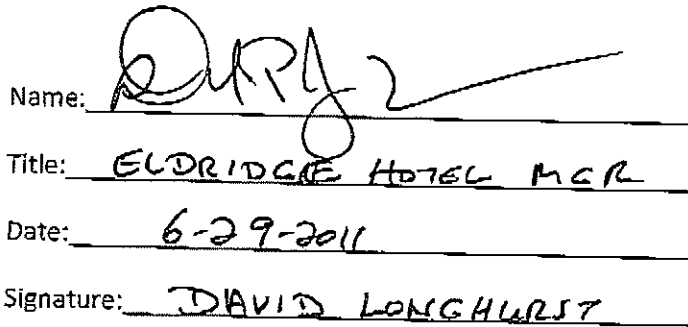 Name:
Title: ELDRIDGE HOTEL MGR
Date: 6-29-2011
Signature: DAVID LONGHURST